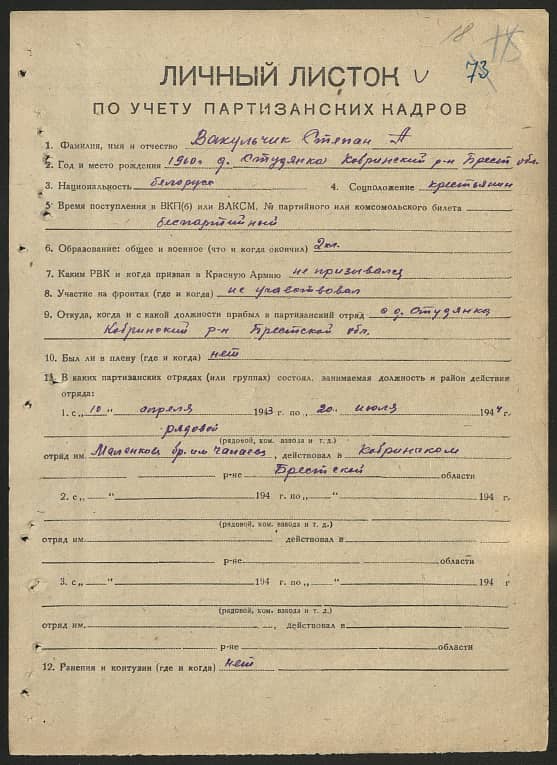 18
73
ЛИЧНЫЙ ЛИСТОК
ПО УЧЕТУ ПАРТИЗАНСКИХ КАДРОВ
1. Фамилия, имя и отчество Вакульчик Степан А
2. Год и место рождения 1900г д. Студянка Кобринский р-н Брест обл.
3. Национальность белорусс 4. Соцположение крестьянин
5. Время поступления в ВКП(б) или ВЛКСМ, № партийного или комсомольского билета
беспартийный
6. Образование: общее и военное (что и когда окончил) 2кл.
7. Каким РВК и когда призван в Красную Армию не призывалец
8. Участие на фронтах (где и когда) не участвовал
9. Откуда, когда и с какой должности прибыл в партизанский отряд с д. Студянка
Кобринский р-н Брестской обл.
10. Был ли в плену (где и когда) нет
11. В каких партизанских отрядах (или группах) состоял, занимаемая должность и район действия
отряда:
1. с „10" апреля 1943 г. по „20" июля 1944 г.
рядовой
(рядовой, ком. взвода и т. д.)
отряд им. Маленкова бр. им Чапаева, действовал в Кобринском
р-не Брестской области
2. с „ " 194 г. по „ " 194 г.
(рядовой, ком. взвода и т. д.)
отряд им. , действовал в
р-не области
3. с „ " 194 г. по „ " 194 г
(рядовой, ком. взвода и т. д.)
отряд им. , действовал в
р-не области
12. Ранения и контузии (где и когда) нет